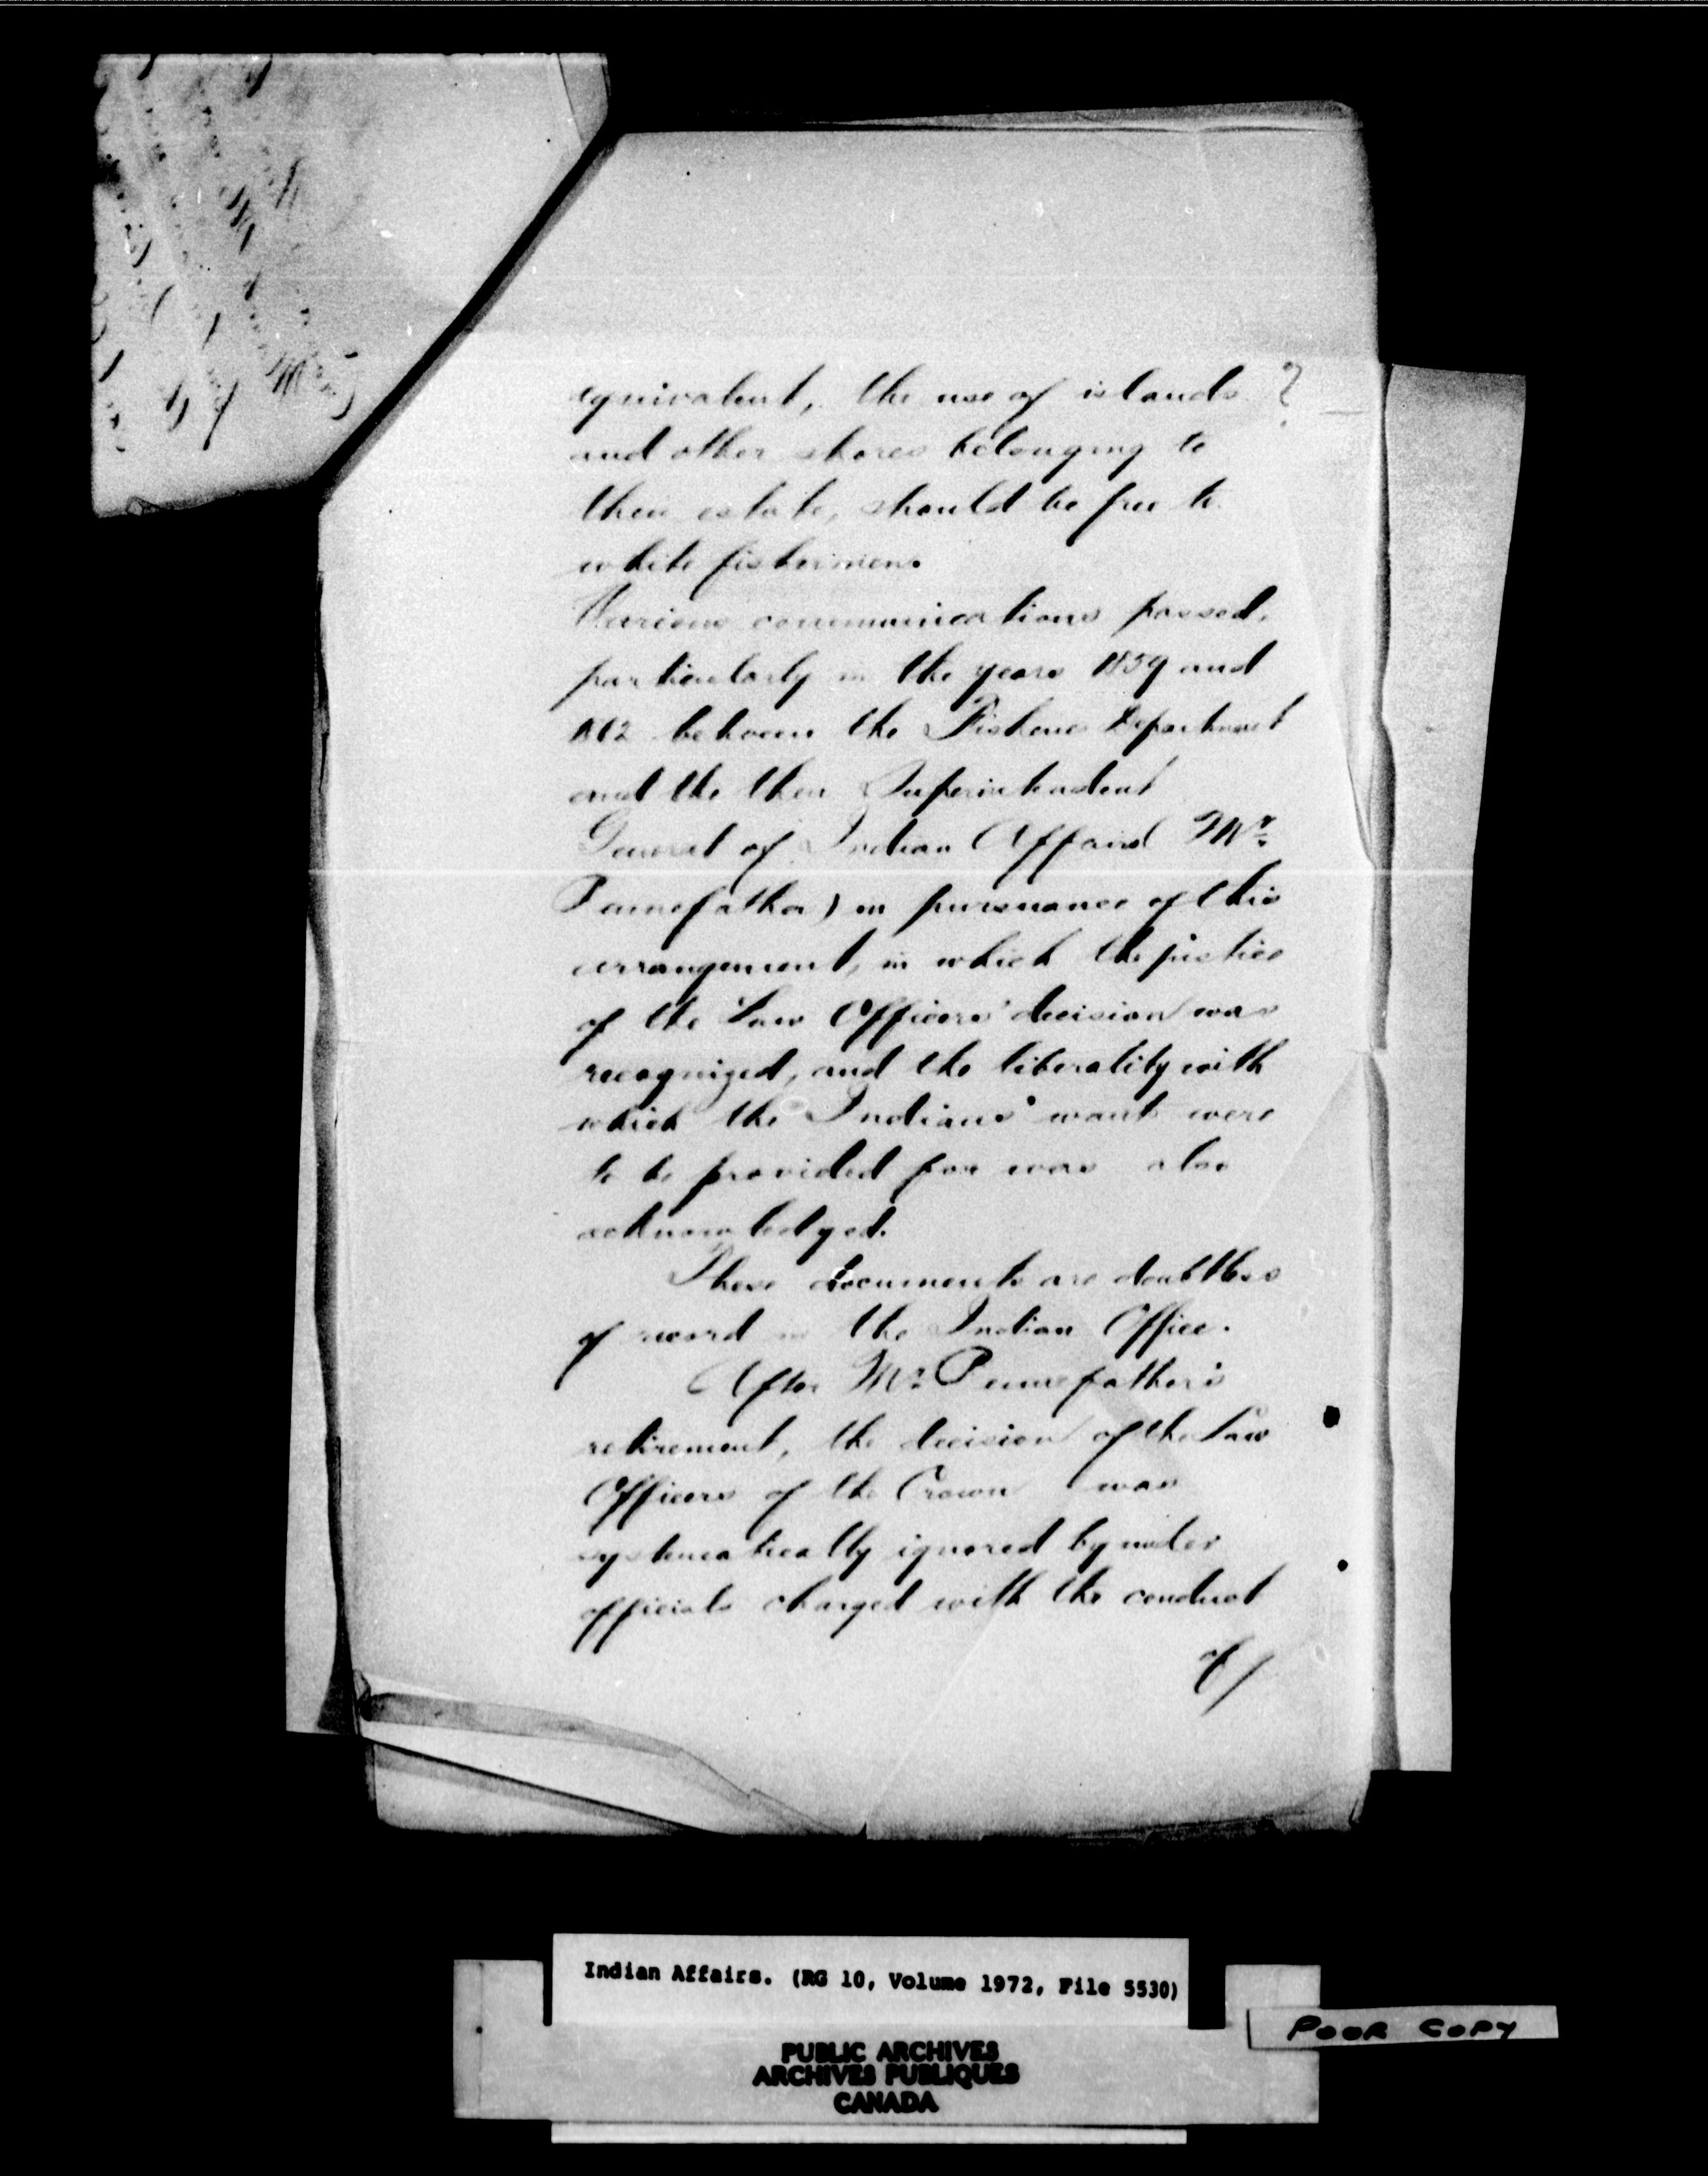 equivalent, the use of islands ?
and other shores belonging to
their estate, should be free to
white fishermen.
Various communications passed,
particularly in the years 1859 and
1862 between the Fisheries Department
and the then Superintendent
General of Indian Affairs Mr.
Pennefather) in pursuance of this
arrangement, in which the justice
of the Law Officers' decision was
recognized, and the liberality with
which the Indians' wants were
to be provided for was also
acknowledged.
These documents are doubtless
of record in the Indian Office.
After Mr. Pennefather's
retirement, the decision of the Law
Officers of the Crown was
systematically ignored by under
officials charged with the conduct
of/
Indian Affairs. (RG 10, Volume 1972, File 5530)
POOR COPY
PUBLIC ARCHIVES
ARCHIVES PUBLIQUES
CANADA